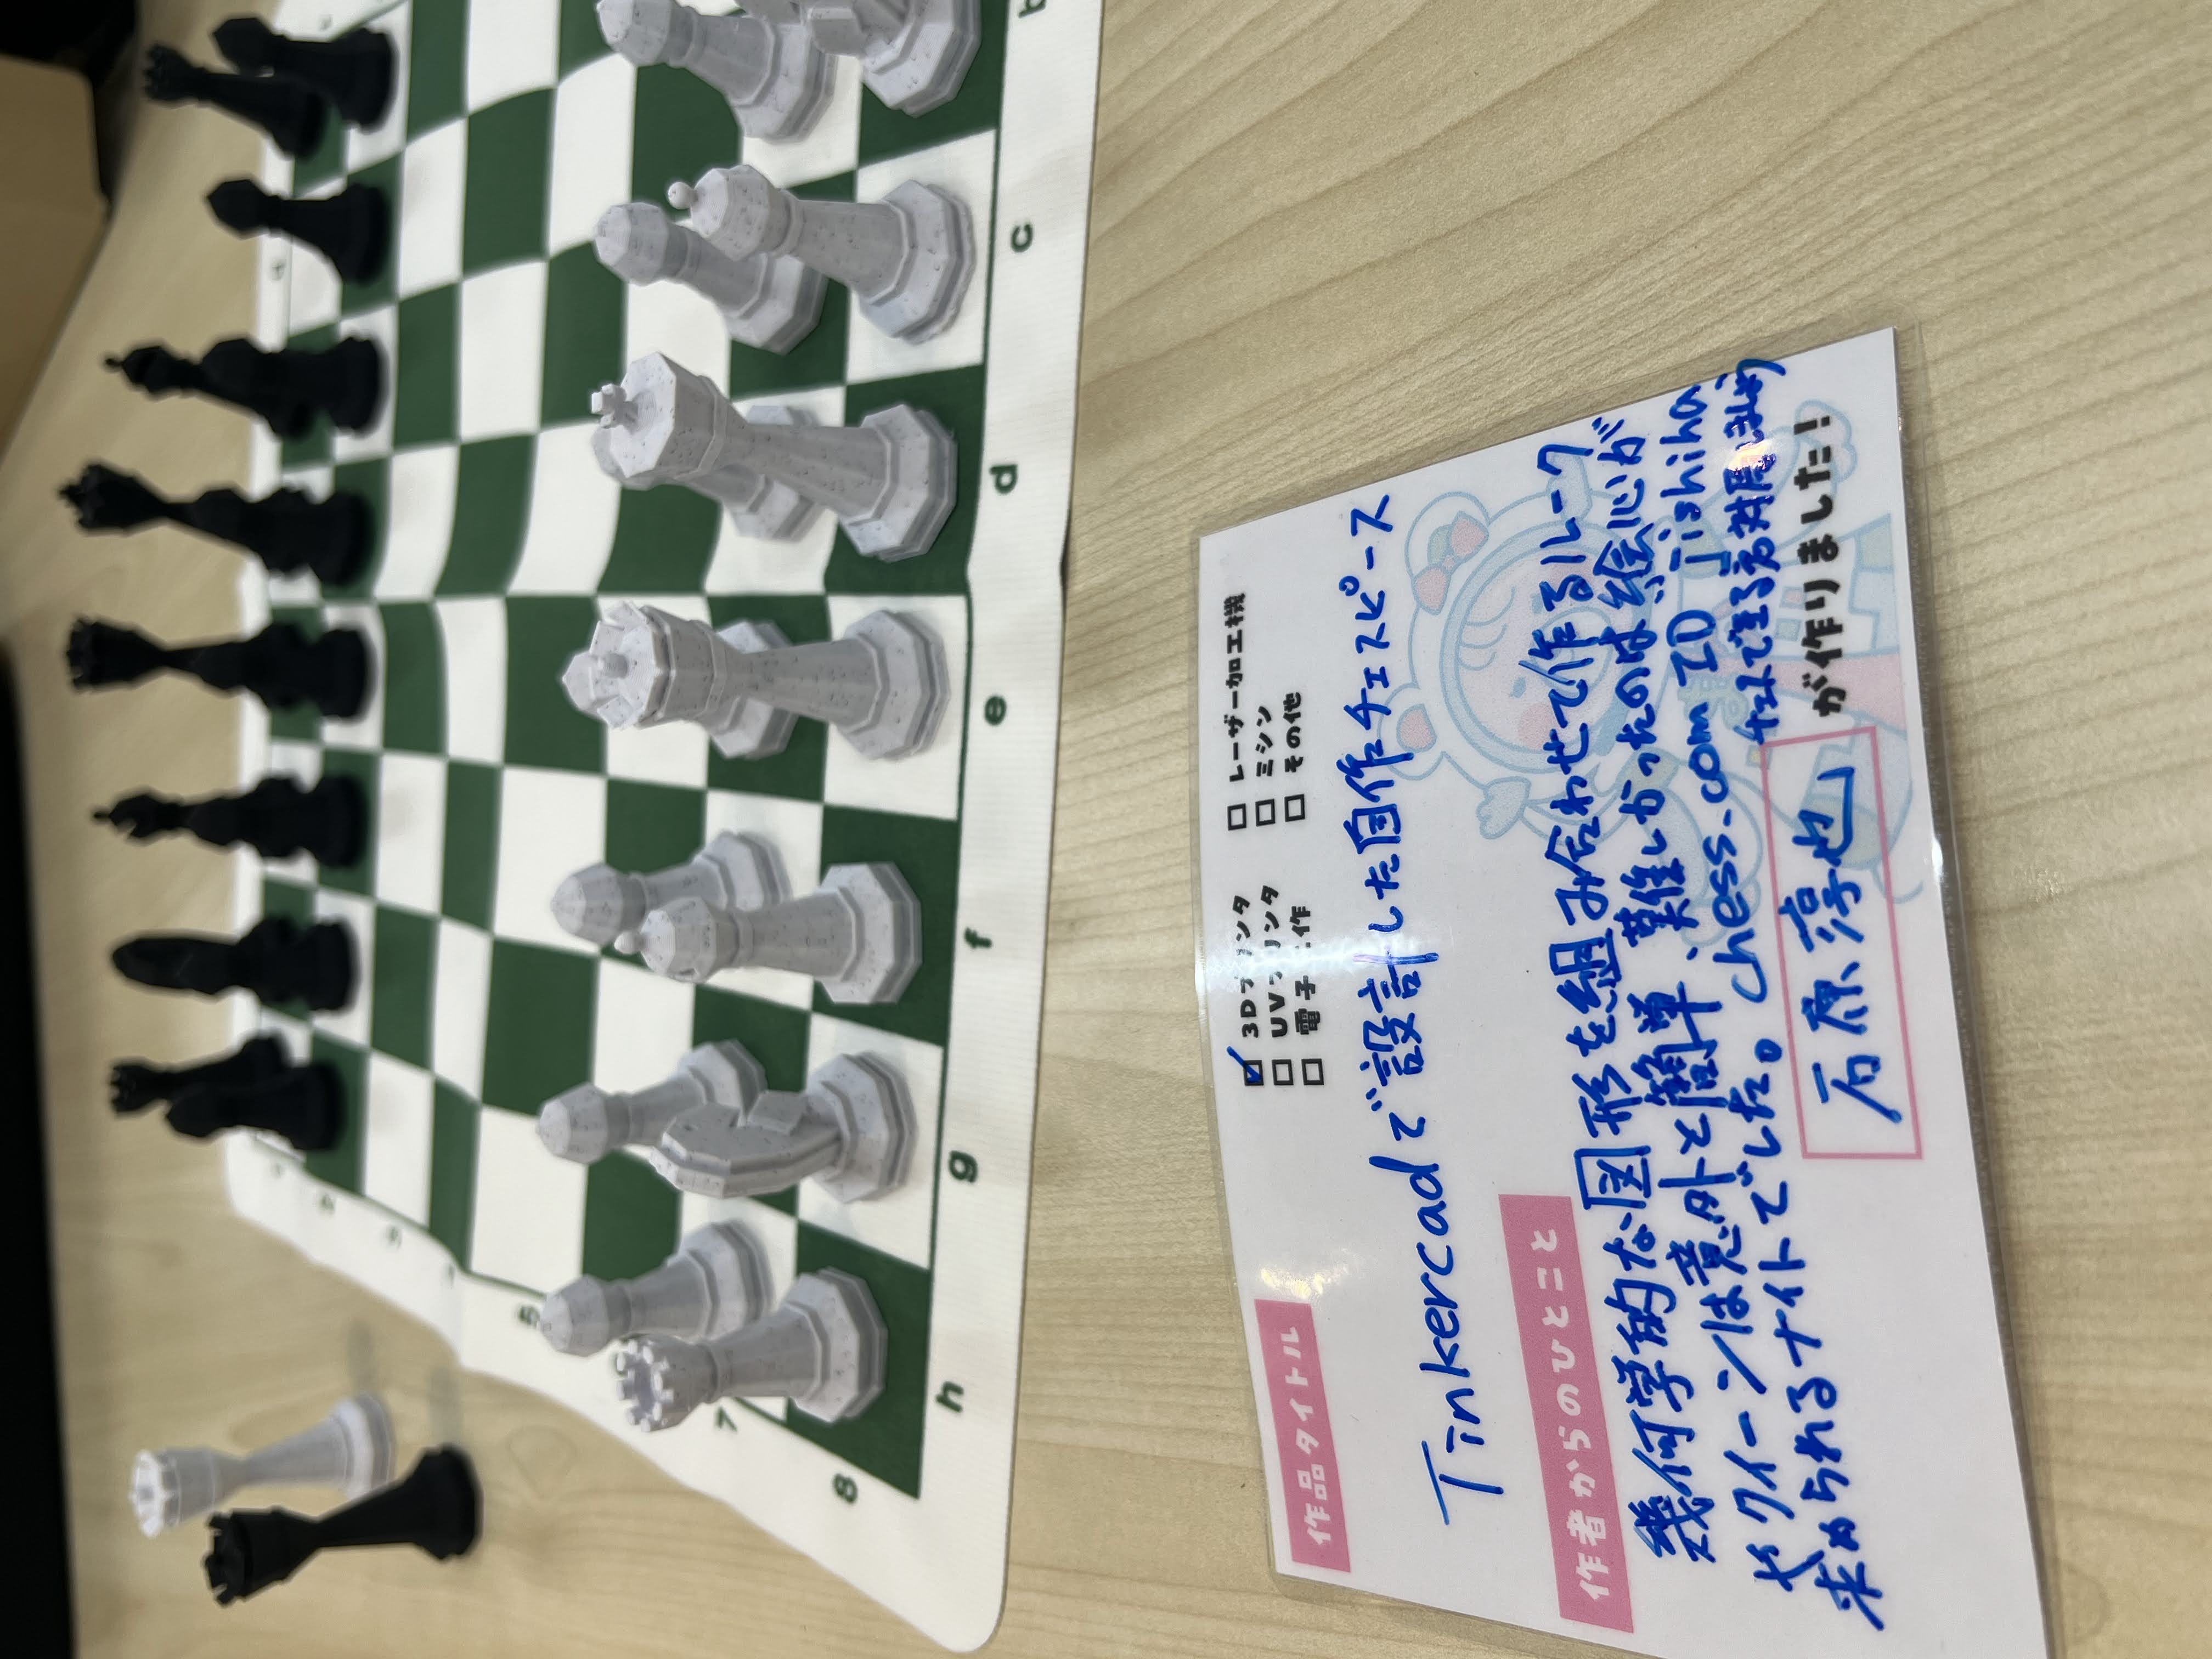 5
7
8
h
g
f
e
d
c
b
3Dプリンタ
レーザー加工機
UVプリンタ
ミシン
電子工作
その他
作品タイトル
Tinkercadで設計した自作チェスピース
作者からのひとこと
幾何学的な図形を組み合わせて作るルーク
やクイーンは意外と簡単、難しかったのは絵心が
求められるナイトでした。chess.com ID jishiha
チェスできる方対局しましょう
石原淳也
が作りました！